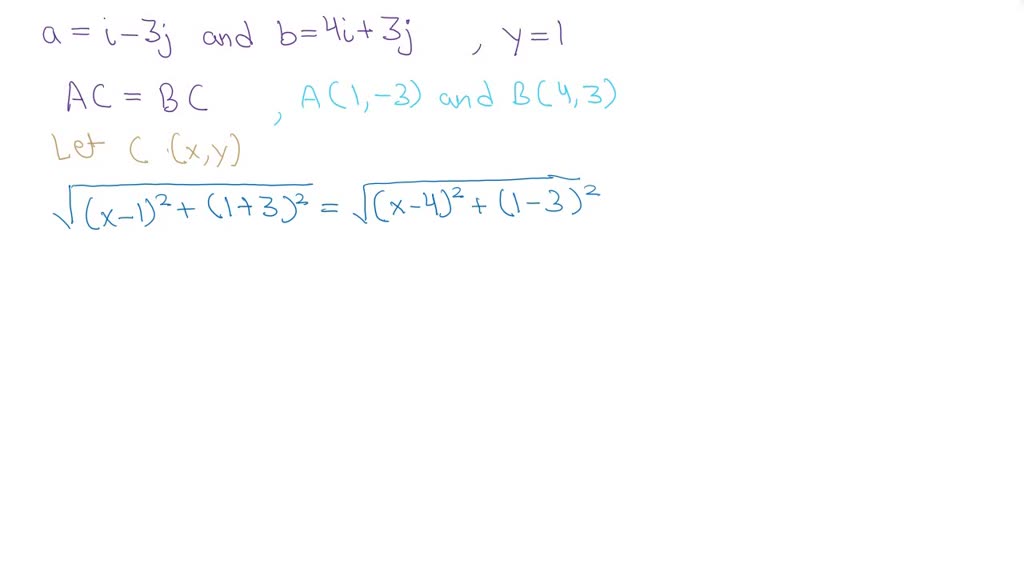 a = i - 3j and b = 4i + 3j , y = 1
AC = BC , A(1, -3) and B(4, 3)
Let C (x, y)
√((x-1)² + (1+3)²) = √((x-4)² + (1-3)²)